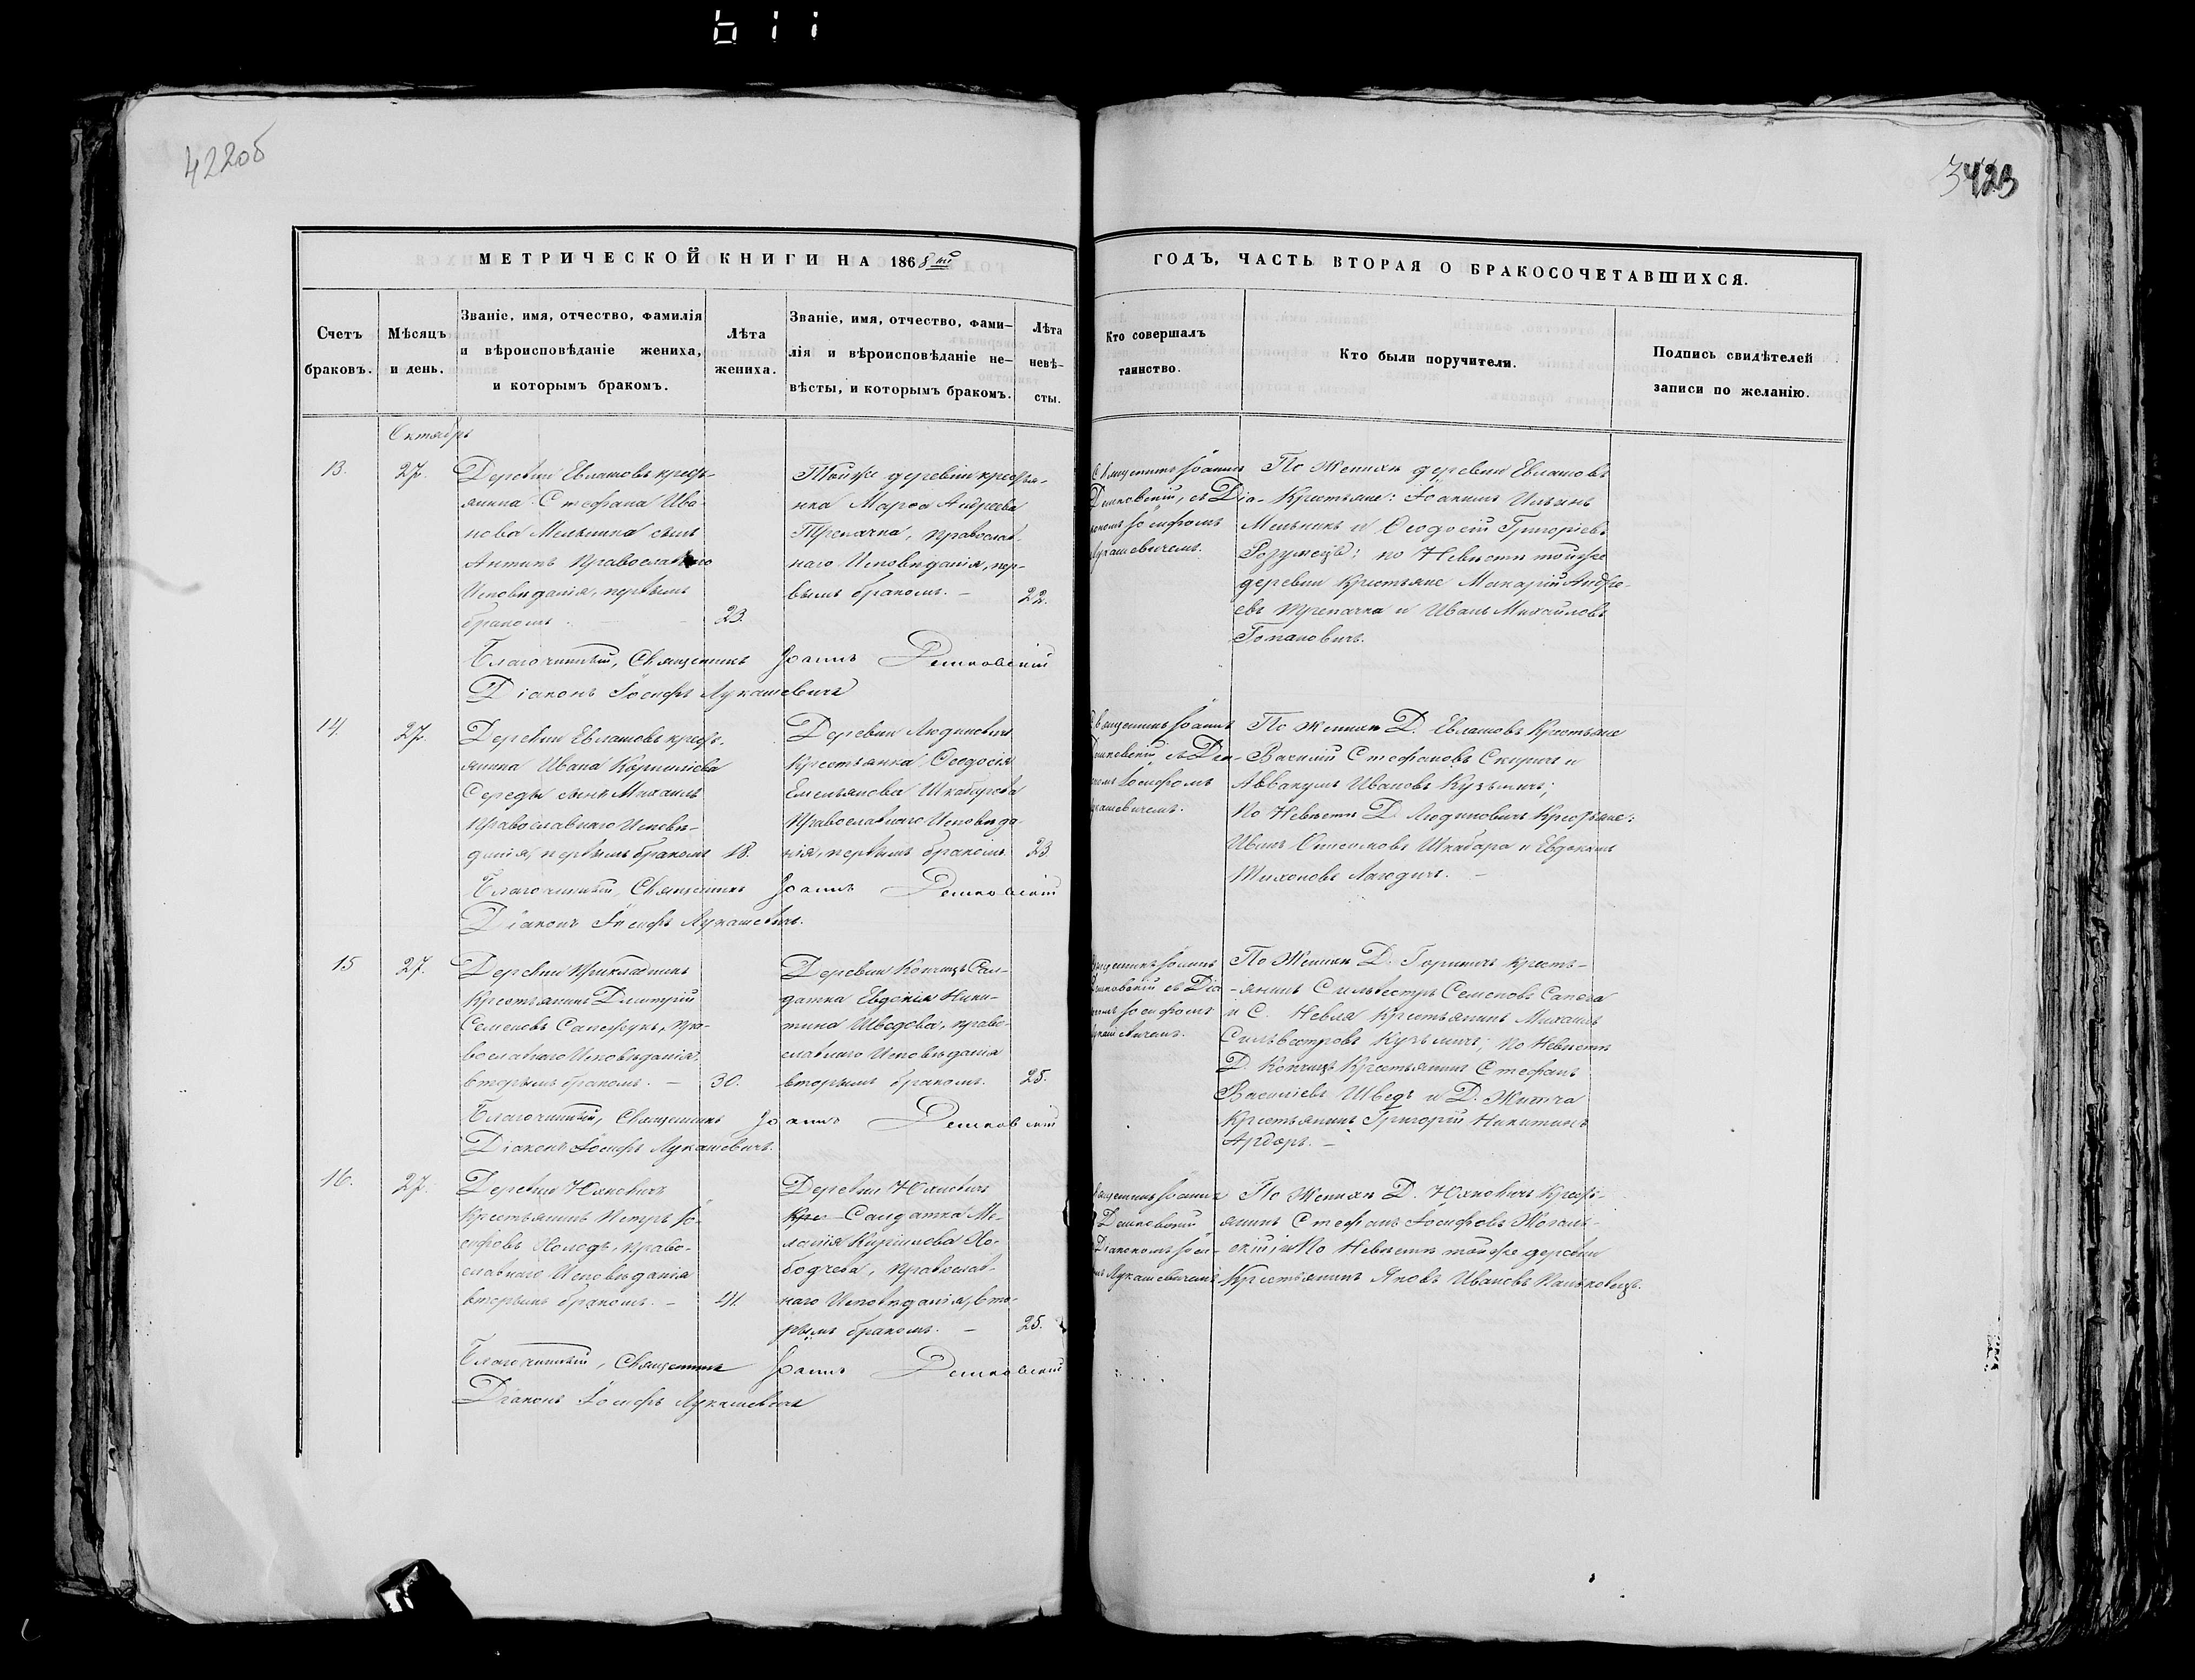 422об
3423
МЕТРИЧЕСКОЙ КНИГИ НА 1868й
ГОДЪ, ЧАСТЬ ВТОРАЯ О БРАКОСОЧЕТАВШИХСЯ.
Счетъ браковъ.
Мѣсяцъ и день.
Званіе, имя, отчество, фамилія
и вѣроисповѣданіе жениха,
и которымъ бракомъ.
Лѣта
жениха.
Званіе, имя, отчество, фами-
лія и вѣроисповѣданіе не-
вѣсты, и которымъ бракомъ.
Лѣта
невѣ-
сты.
Кто совершалъ
таинство.
Кто были поручители.
Подпись свидѣтелей
записи по желанію.
Октябрь
13.
27.
Деревни Евлашовъ кресть-
янина Стефана Ива-
нова Мельника сынъ
Антипъ Православнаго
Исповѣданія, первымъ
бракомъ.
23.
Тойже деревни крестья-
нка Марѳа Андреева
Трепачка, православ-
наго Исповѣданія, пер-
вымъ бракомъ. –
22.
Священникъ Іоаннъ
Демковскій, съ Діа-
кономъ Іосифомъ
Лукашевичемъ.
По Женихѣ деревни Евлашовъ
Крестьяне: Іоакимъ Ильинъ
Мельникъ и Ѳеодосій Григоріевъ
Розумецъ; по Невѣстѣ тойже
деревни крестьяне Макарій Андре-
евъ Трепачка и Иванъ Михайловъ
Гомановичъ.
Благочинный, Священникъ Іоаннъ Демковскій
Діаконъ Іосифъ Лукашевичъ
14.
27.
Деревни Евлашовъ кресть-
янина Ивана Корнилієва
Середы сынъ Михаилъ
Православнаго Исповѣ-
данія, первымъ бракомъ
18.
Деревни Людиневичъ
Крестьянка Ѳеодосія
Емельянова Шкабарова
Православнаго Исповѣда-
нія, первымъ бракомъ.
23.
Священникъ Іоаннъ
Демковскій, съ Діа-
кономъ Іосифомъ
Лукашевичемъ.
По Женихѣ Д. Евлашовъ Крестьяне
Василій Стефановъ Скиричъ и
Аввакумъ Ивановъ Кузьмичъ;
По Невѣстѣ Д. Людиновичъ Крестьяне:
Шкабара и Евдокимъ
Тихоновъ Лагодичъ. –
Благочинный, Священникъ Іоаннъ Демковскій
Діаконъ Іосифъ Лукашевичъ.
15
27.
Деревни Прикладникъ
Крестьянинъ Дмитрій
Семеновъ Сапежукъ, пра-
вославнаго Исповѣданія,
вторымъ бракомъ. –
30.
Деревни Копчицъ Сол-
датка Евдокія Ники-
тина Шведова, право-
славнаго Исповѣданія
вторымъ бракомъ.
25.
Священникъ Іоаннъ
Демковскій съ Діа-
кономъ Іосифомъ
Лукашевичемъ.
По Женихѣ Д. Горничъ кресть-
янинъ Сильвестръ Семеновъ Сапега
и С. Невля Крестьянинъ Михаилъ
Сильвестровъ Кузьмичъ; по Невѣстѣ
Д. Копчицъ Крестьянинъ Стефанъ
Василіевъ Шведъ и Д.
Крестьянинъ Григорій Никитинъ
Благочинный, Священникъ Іоаннъ Демковскій
Діаконъ Іосифъ Лукашевичъ.
16.
27.
Деревни Юхновичъ
Крестьянинъ Петръ Іо-
сифовъ Холодъ, право-
славнаго Исповѣданія
вторымъ бракомъ. –
41.
Деревни Юхновичъ
Кре Солдатка Ме-
ланія Кириллова
православ-
наго Исповѣданія, вто-
рымъ бракомъ. –
25.
Священникъ Іоаннъ
Демковскій
Діакономъ Іоси-
фомъ Лукашевичемъ
По Женихѣ Д. Юхновичъ Кресть-
янинъ Стефанъ Іосифовъ
По Невѣстѣ тойже деревни
Крестьянинъ Яковъ Ивановъ Паньковецъ.
Благочинный, Священникъ Іоаннъ Демковскій
Діаконъ Іосифъ Лукашевичъ